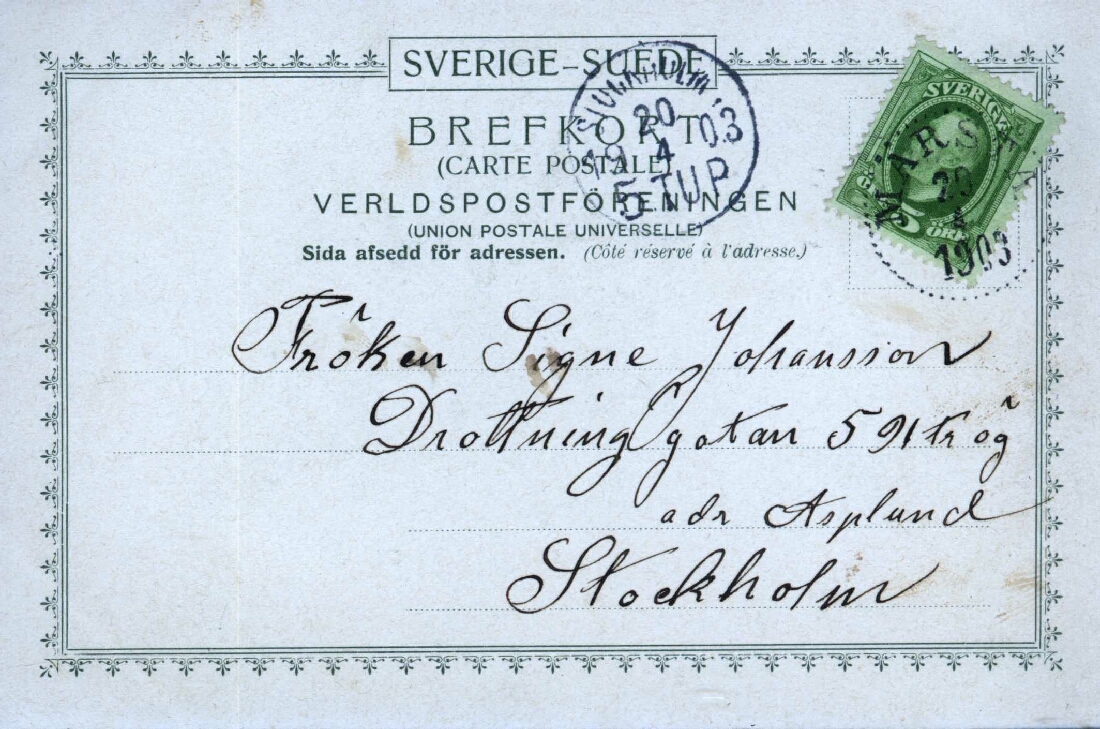 SVERIGE-SUEDE
BREFKORT
(CARTE POSTALE)
VERLDSPOSTFÖRENINGEN
(UNION POSTALE UNIVERSELLE)
Sida afsedd för adressen. (Côté réservé à l'adresse.)
20
4
03
5 TUR
SVERIGE
5 ÖRE
MÄRSTA
20
4
1903
Fröken Signe Johansson
Drottninggatan 59 1 tr ög
adr Asplund
Stockholm